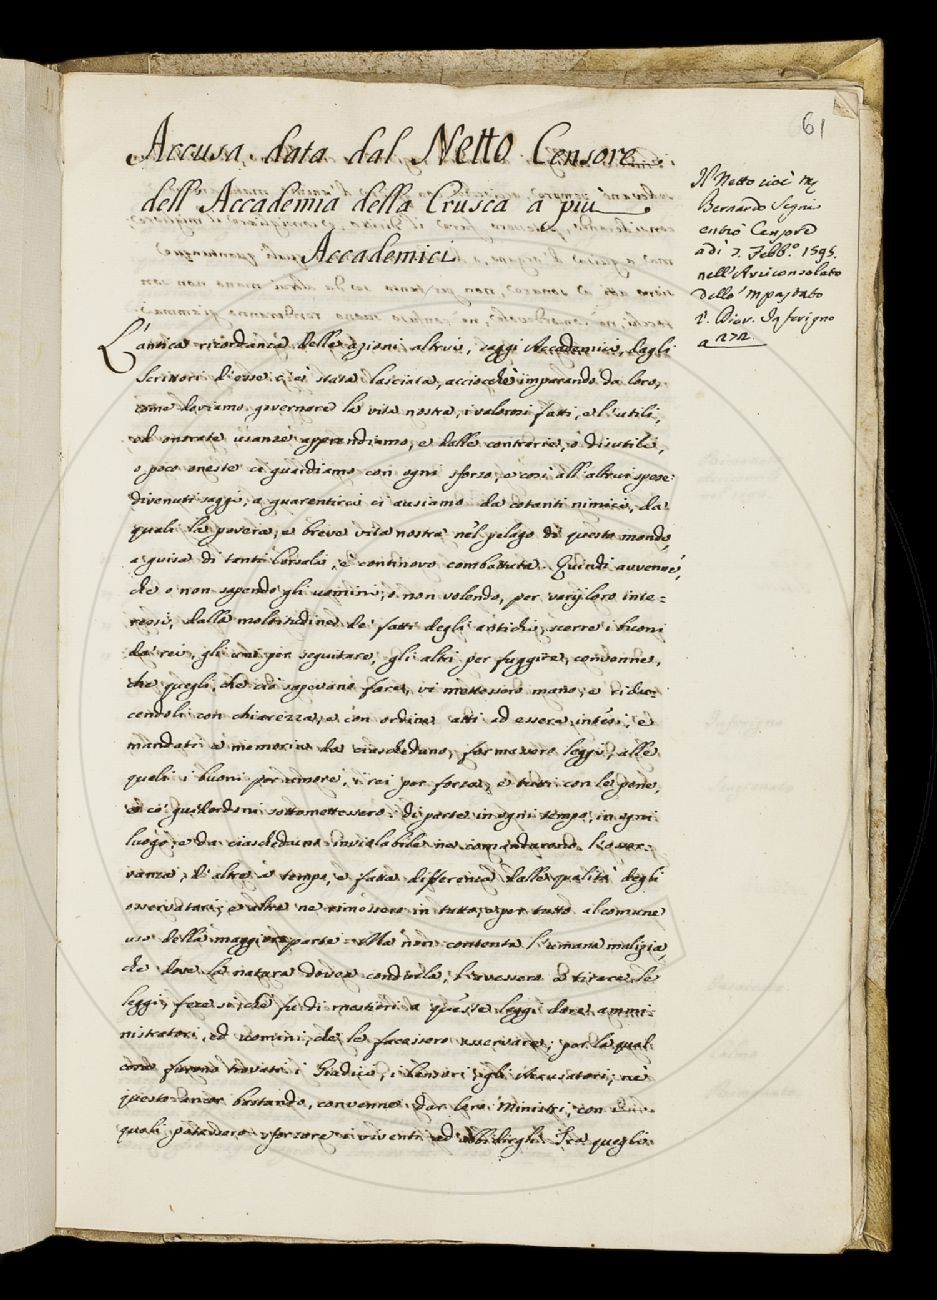 61
Accusa data dal Netto Censore
dell'Accademia della Crusca a più
Accademici
Il Netto cioè
Bernardo Segni
entrò Censore
adì 2. Febb.º 1595.
nell'Arciconsolato
dello 'mpastato
v. Diar. Inferigno
a 272
L'antica ricordanza delle azioni altrui, saggi Accademici, dagli
Scrittori d'esse ci è stata lasciata, acciocchè imparando da loro,
come doviamo governare la vita nostra, i valorosi fatti, e l'utili,
ed onorate usanze apprendiamo, e dalle contrarie, o disutili,
o poco oneste ci guardiamo con ogni sforzo, e così all'altrui spese
divenuti saggi, a guarentirci ci ausiamo da cotanti nimici, da
quali la povera, e breve vita nostra nel pelago di questo mondo,
a guisa di tanti Corsali, è continovo combattuta. Quindi avvenne,
che o non sapendo gli uomini, o non volendo, per varij loro inte=
ressi, dalla moltitudine de' fatti degli antichi, scerre i buoni
da rei, gli uni per seguitare, gli altri per fuggire, convenne,
che quegli, che ciò sapevano fare, vi mettessero mano, e ridu=
cendoli con chiarezza, e con ordine atti ad essere intesi, e
mandati a memoria da ciascheduno, formavero leggi, alle
quali i buoni per amore, i rei per forza, e tutti con le pene,
e co' guiderdoni sottomettessero: di parte in ogni tempo, in ogni
luogo, e da ciascheduno inviolabile ne comandarono l'osser=
vanza, d'altre a tempo, e fatta differenza dalle qualità degli
osservatori; e altre ne rimossero in tutto, e per tutto al comune
uso della maggior parte. Ma non contenta l'umana malizia,
che dove la natura dovea condurla, l'avessero a tirare le
leggi, fece sì, che fu di mestieri a queste leggi dare ammi=
nistratori, ed uomini, che le facessero osservare; per la qual
cosa furono trovati i Giudici, i Censori, gli Accusatori; nè
questo ancor bastando, convenne dar loro Ministri, con
quali potessero sforzare i viventi ad ubbidirgli. Fra quegli